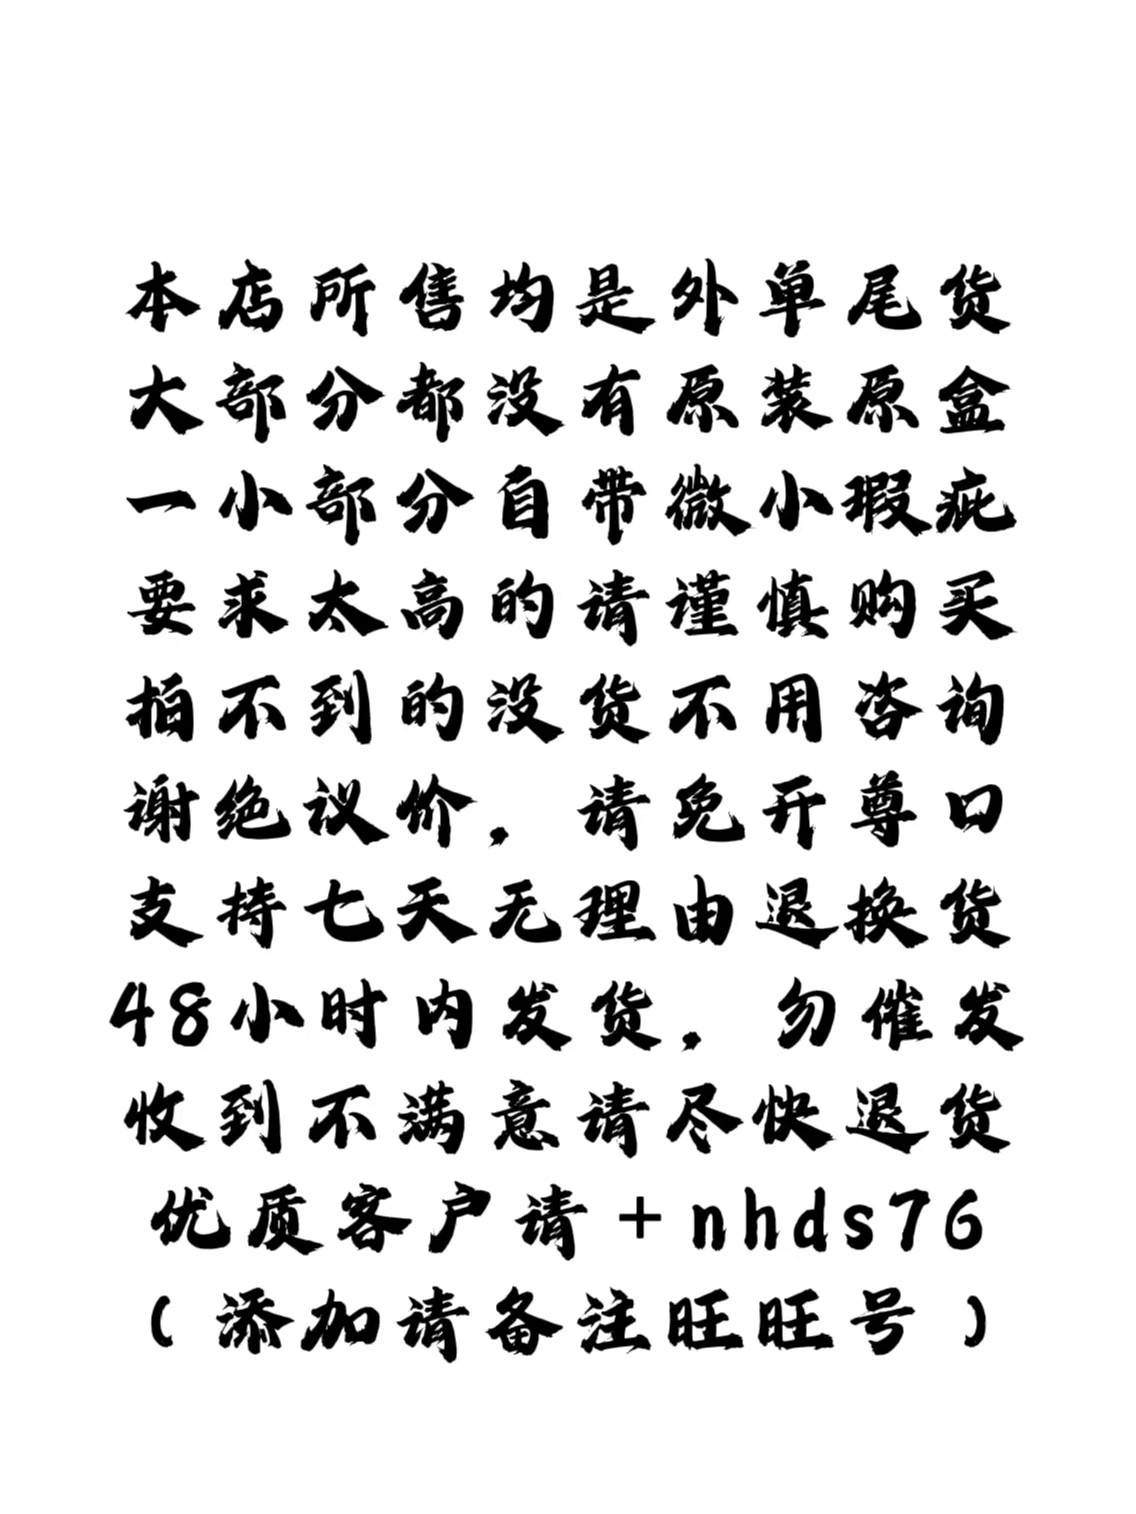 本店所售均是外单尾货
大部分都没有原装原盒
一小部分自带微小瑕疵
要求太高的请谨慎购买
拍不到的没货不用咨询
谢绝议价，请免开尊口
支持七天无理由退换货
48小时内发货，勿催发
收到不满意请尽快退货
优质客户请+nhds76
（添加请备注旺旺号）